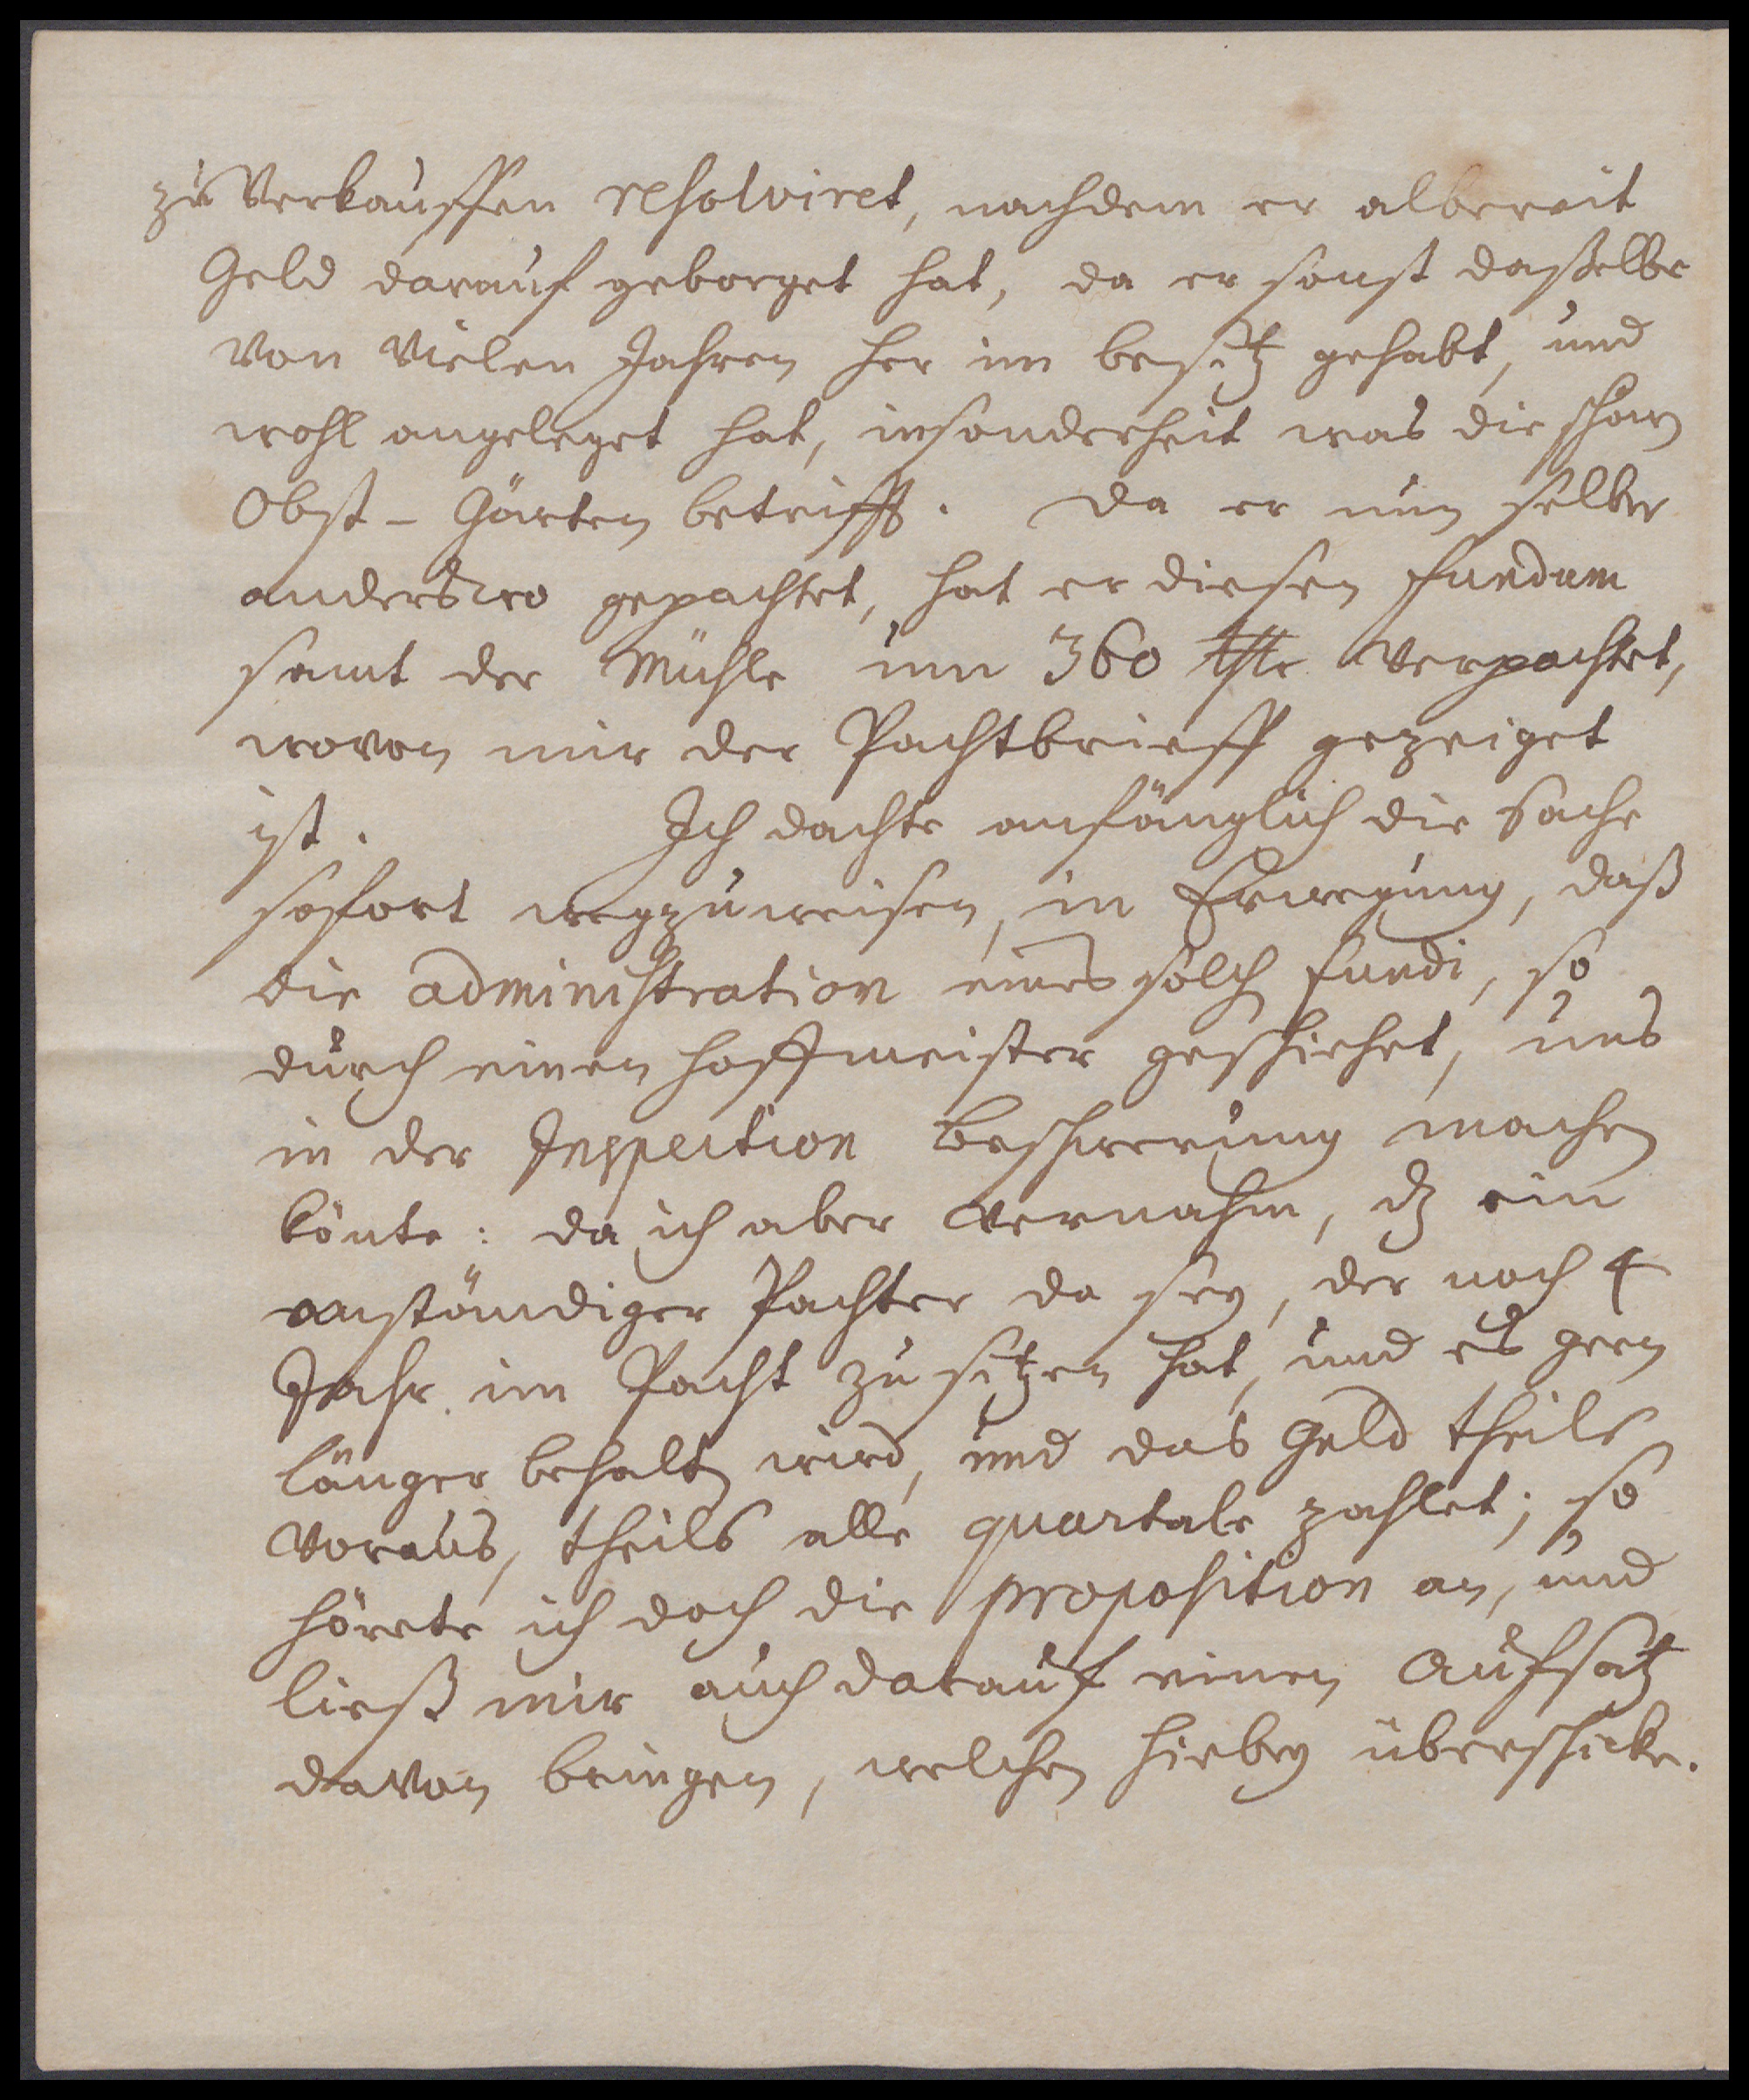 zu Verkauffen resolviret, nachdem er albereit
Geld darauf geborget hat, da er sonst daßelbe
von vielen Jahren her im besitz gehabt, und
wohl angeleget hat, insonderheit was die schön
Obst-Gärten betrifft. Da er nun selber
anderswo gepachtet, hat er diesen fundum
samt der Mühle um 360 thlr verpachtet,
wovon mir der Pachtbrieff gezeiget
ist. Ich dachte anfänglich die Sache
sofort wegzuweisen, in Erwegung, daß
die administration eines solch fundi, so
durch einen Hoffmeister geschiehet, uns
in der Inspection Beschwerung machen
könte: da ich aber vernahm, dz ein
anständiger Pachter da sey, der noch 4
Jahr im Pacht zu sitzen hat, und es gern
länger behalten wird, und das Geld theils
voraus, theils alle quartale zahlet; so
hörete ich doch die proposition an, und
ließ mir auch darauf einen Aufsatz
davon bringen, welchen hiebey überschicke.